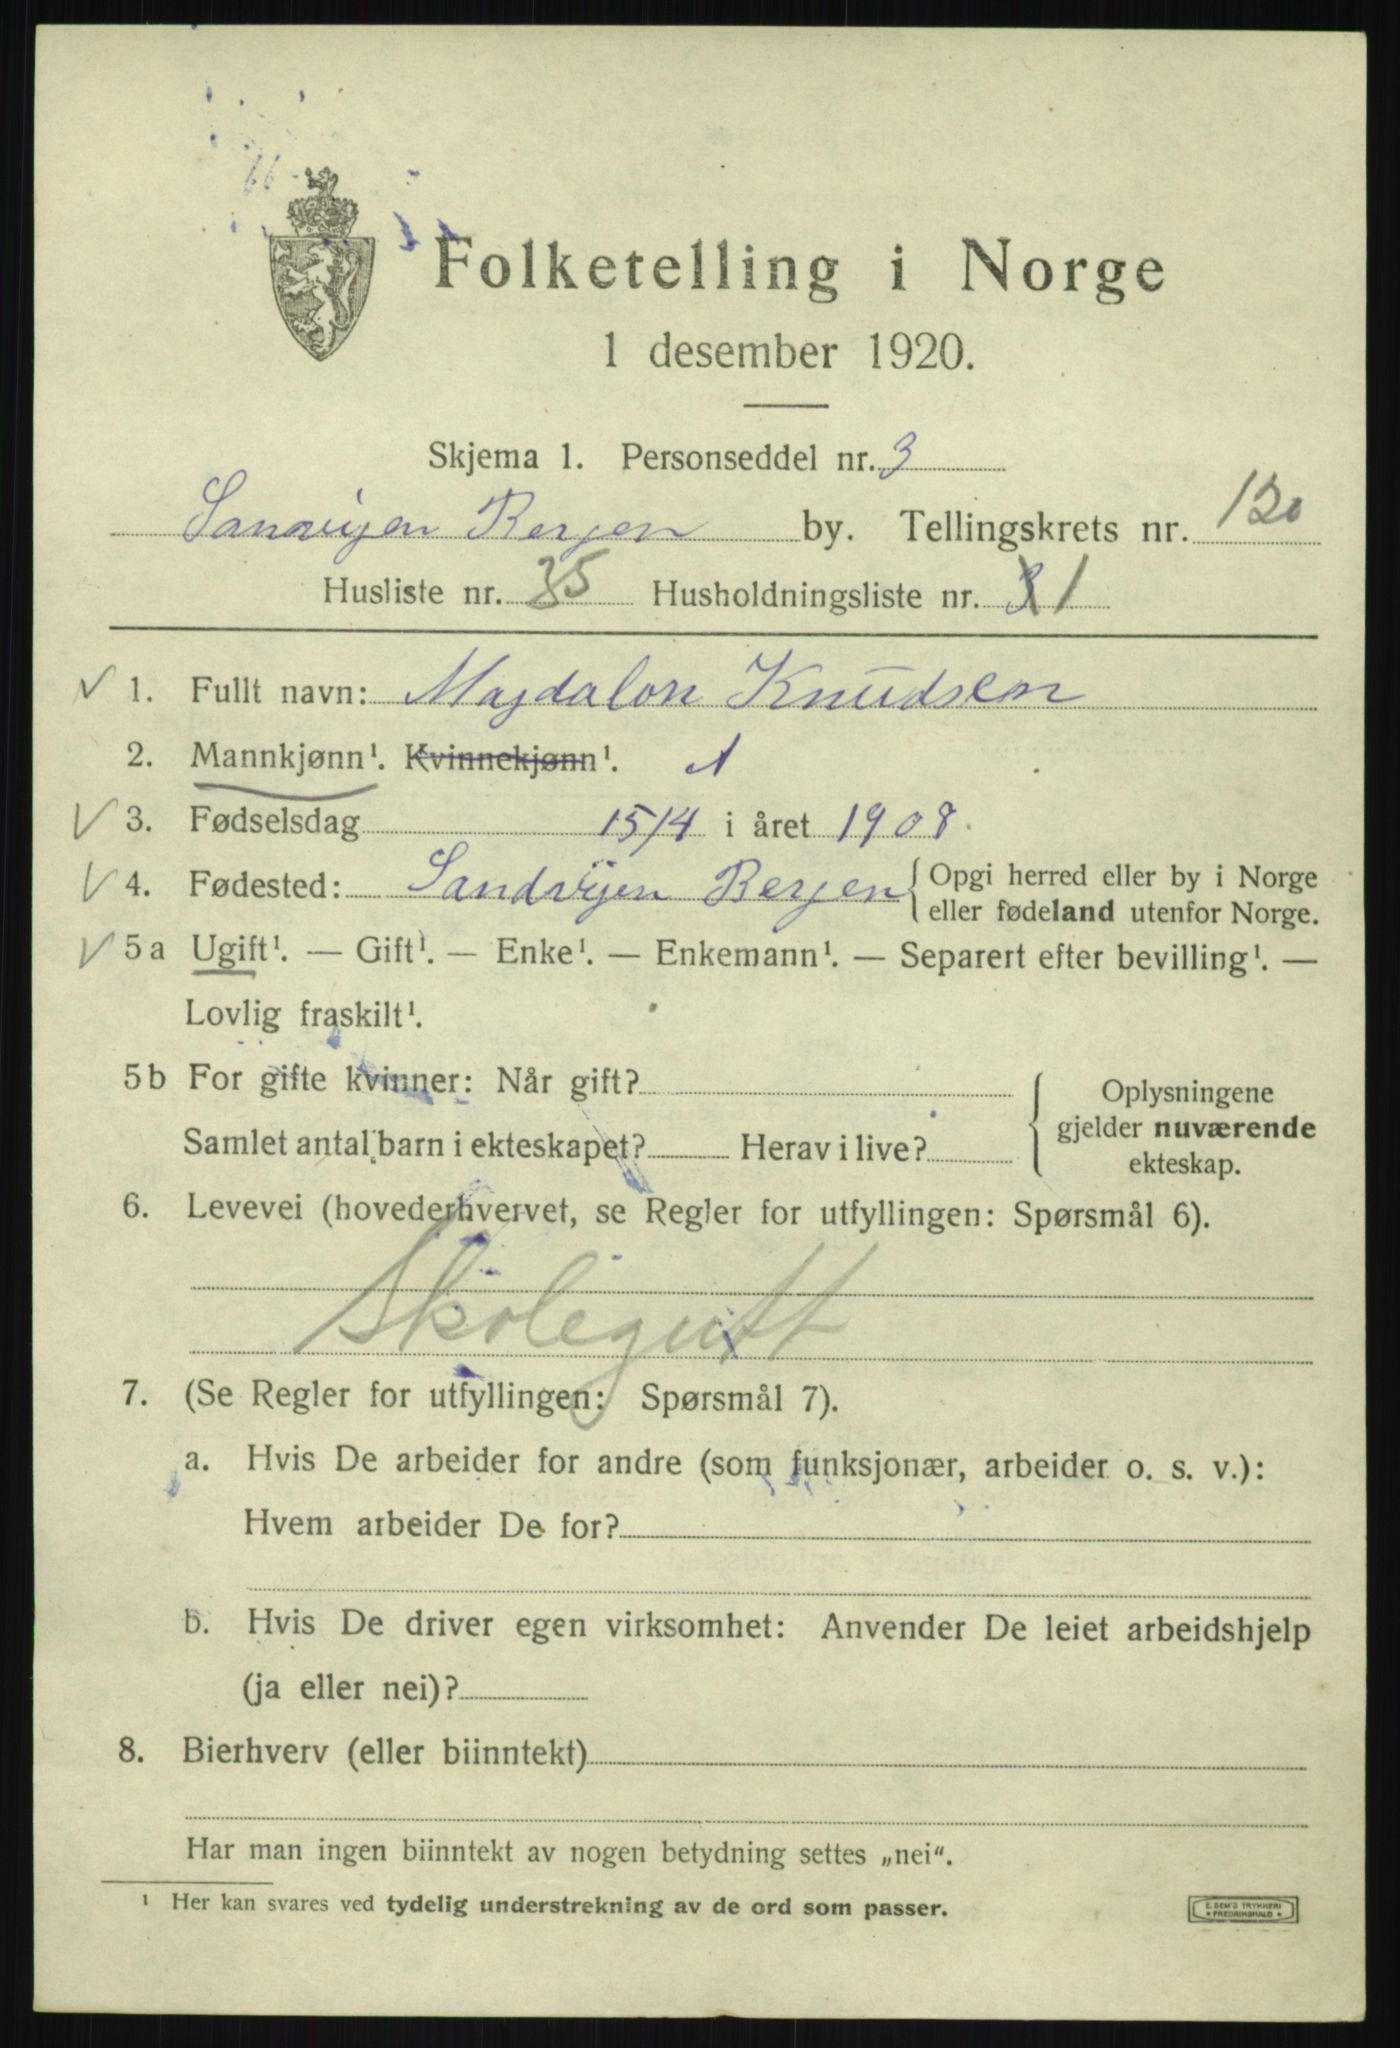 Folketelling i Norge
1 desember 1920.
Skjema 1. Personseddel nr. 3
Sanvigen Bergen by. Tellingskrets nr. 120
Husliste nr. 35 Husholdningsliste nr. 1
1. Fullt navn: Magdalon Knudsen
2. Mannkjønn¹. Kvinnekjønn¹.
3. Fødselsdag 15/4 i året 1908.
4. Fødested: Sandvigen Bergen { Opgi herred eller by i Norge
eller fødeland utenfor Norge.
5a Ugift¹. — Gift¹. — Enke¹. — Enkemann¹. — Separert efter bevilling¹. —
Lovlig fraskilt¹.
5b For gifte kvinner: Når gift?
Samlet antal barn i ekteskapet? Herav i live?
Oplysningene
gjelder nuværende
ekteskap.
6. Levevei (hovederhvervet, se Regler for utfyllingen: Spørsmål 6).
Skolegutt
7. (Se Regler for utfyllingen: Spørsmål 7).
a. Hvis De arbeider for andre (som funksjonær, arbeider o. s. v.):
Hvem arbeider De for?
b. Hvis De driver egen virksomhet: Anvender De leiet arbeidshjelp
(ja eller nei)?
8. Bierhverv (eller biinntekt)
Har man ingen biinntekt av nogen betydning settes „nei“.
¹ Her kan svares ved tydelig understrekning av de ord som passer.
E. SEM'S TRYKKERI
FREDRIKSHALD